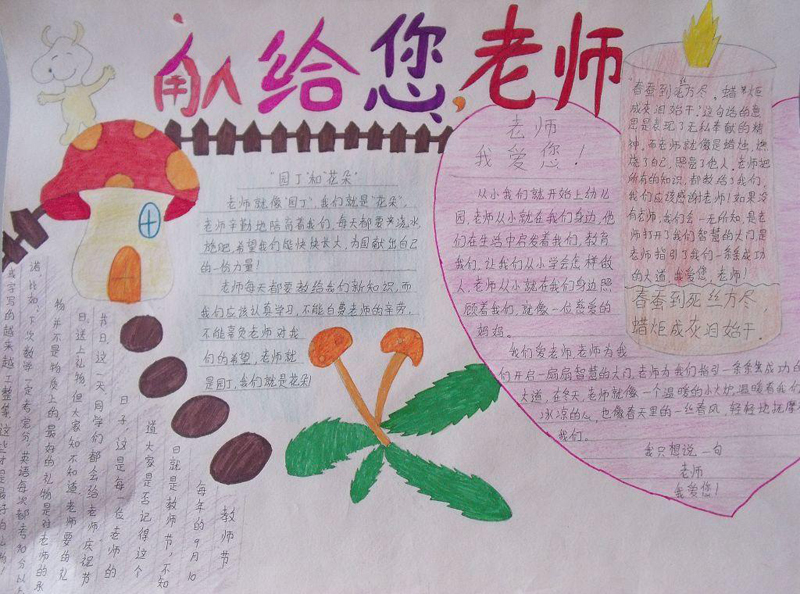 献给您,老师
"园丁"和"花朵"
老师就像"园丁",我们就是"花朵"。
老师辛勤地培育着我们,每天都要来浇水
施肥,希望我们能快快长大,为国献出自己
的一份力量!
老师每天都要教给我们新知识,而
我们应该认真学习,不能白费老师的辛劳,
不能辜负老师对我
们的希望,老师就
是园丁,我们就是花朵!
老师
我爱您!
从小我们就开始上幼儿
园,老师从小就在我们身边,他
们在生活中启发着我们,教育
我们,让我们从小学会怎样做
人,老师从小就在我们身边照
顾着我们,就像一位慈爱的
妈妈。
我们爱老师,老师为我
们开启一扇扇智慧的大门,老师为我们指引一条条成功的
大道,在冬天,老师就像一个温暖的小火炉,温暖着我们
冰凉的心,也像春天里的一丝春风,轻轻地抚摩
我们。
我只想说一句
老师
我爱您!
"春蚕到死丝方尽,蜡炬
成灰泪始干。"这句话的意
思是表现了无私奉献的精
神,而老师就像是蜡烛,燃
烧了自己,照亮了他人,老师把
所有的知识,都教给了我们,
我们应该感谢老师!如果没
有老师,我们会一无所知,是老
师打开了我们智慧的大门,是
老师指引了我们一条条成功
的大道,我爱您,老师!
春蚕到死丝方尽
蜡炬成灰泪始干.
教师节
每年的9月10
日就是教师节,不知
道大家是否记得这个
日子,这是每一位老师的
节日,这一天同学们都会给老师庆祝节
日,送上礼物,但大家知不知道,老师要的礼
物并不是物质上的,最好的礼物是对老师的永
诸比如,下次数学一定考
我字写的越来越工整